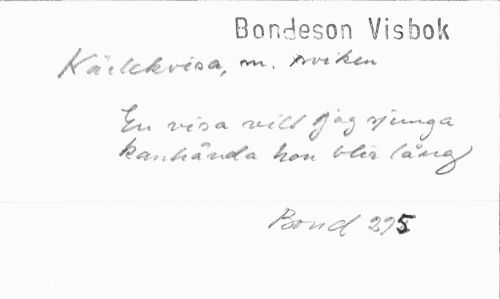 Bondeson Visbok
Kärlekvisa, m. sviken
En visa vill jag sjunga
kanhända hon blir lång
Bond 295